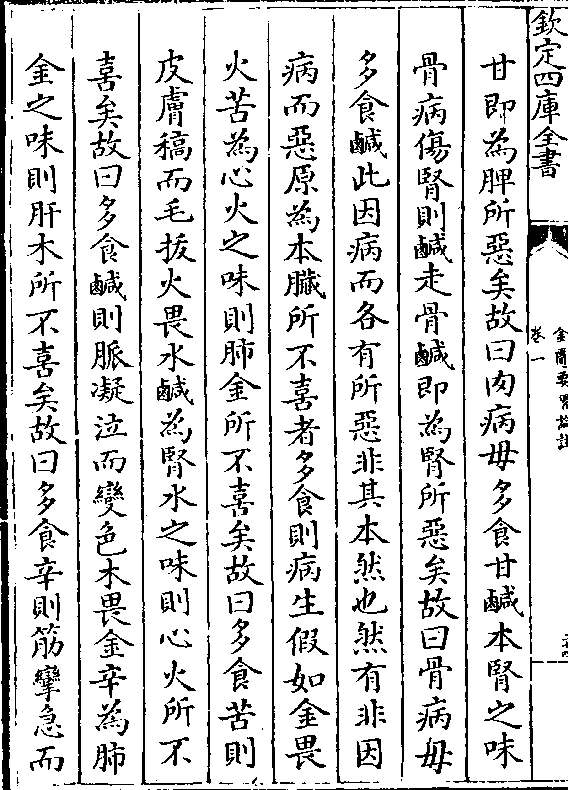 欽定四庫全書
金匱要略論註
卷一
甘即為脾所惡矣故曰肉病毋多食甘鹹本腎之味
骨病傷腎則鹹走骨鹹即為腎所惡矣故曰骨病毋
多食鹹此因病而各有所惡非其本然也然有非因
病而惡原為本臟所不喜者多食則病生假如金畏
火苦為心火之味則肺金所不喜矣故曰多食苦則
皮膚稿而毛拔火畏水鹹為腎水之味則心火所不
喜矣故曰多食鹹則脈凝泣而變色木畏金辛為肺
金之味則肝木所不喜矣故曰多食辛則筋攣急而